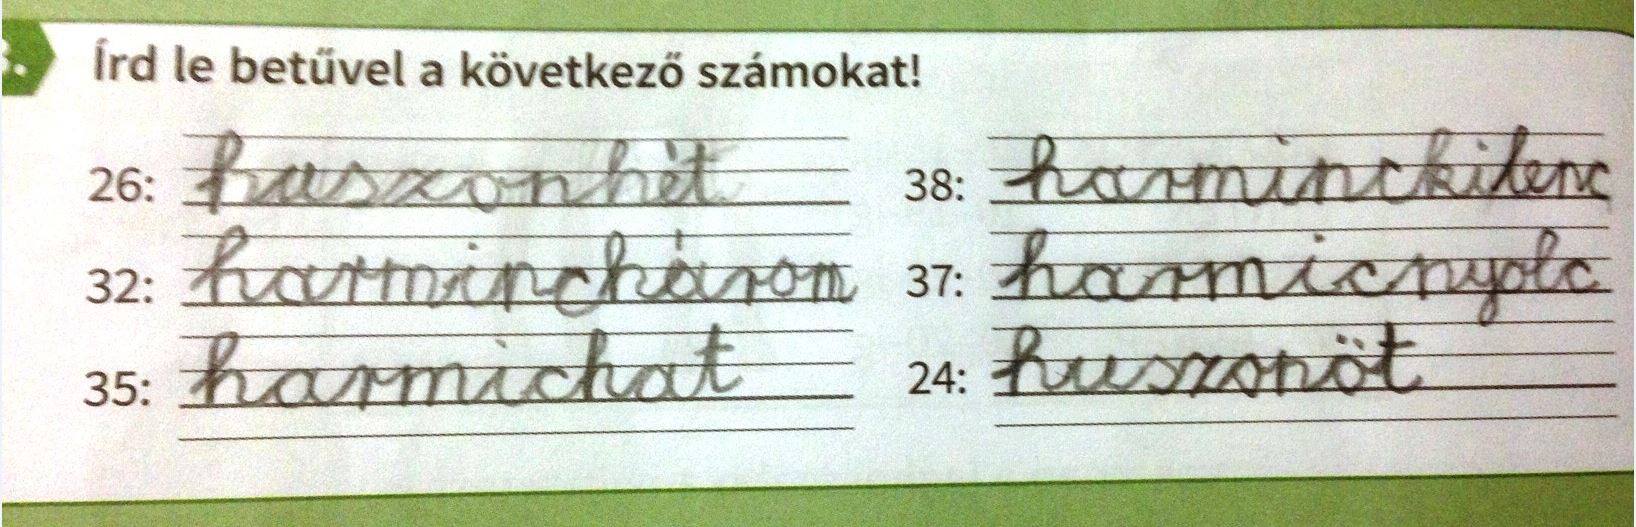 3. Írd le betűvel a következő számokat!
26: huszonhét
38: harminckilenc
32: harminchárom
37: harmicnyolc
35: harmichat
24: huszonöt